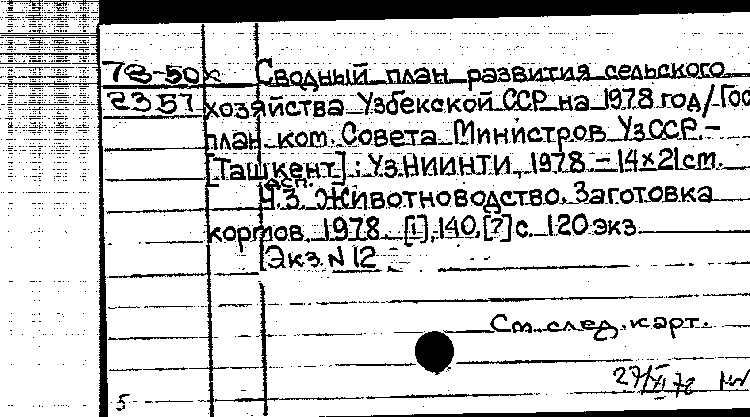 78-50к Сводный план развития сельского
2357 хозяйства Узбекской ССР на 1978 год/Гос
план. ком. Совета Министров УзССР.-
[Ташкент]: УзНИИНТИ, 1978.-14х21см.
Ч.3. Животноводство. Заготовка
кормов. 1978. [1], 140, [7] с. 120 экз.
[Экз. N 12
См. след. карт.
27/XI 78
5